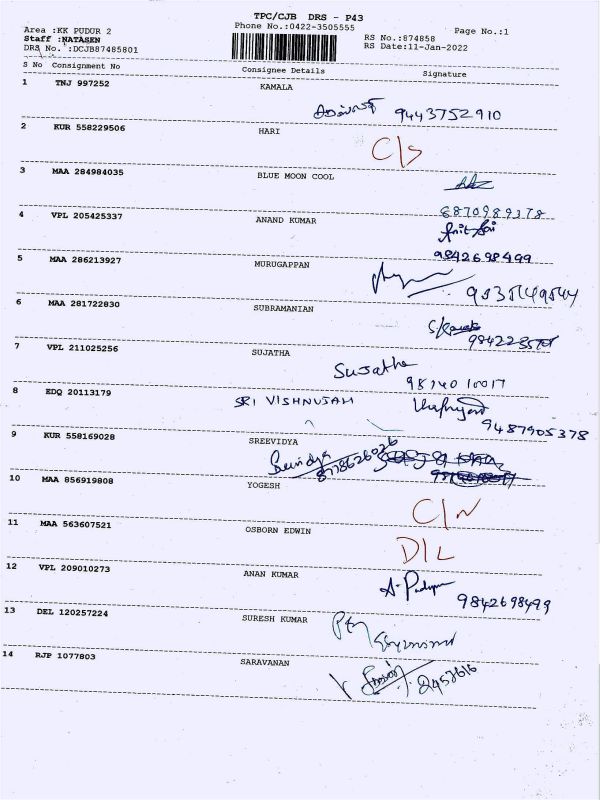 TPC/CJB DRS - P43
Area :KK PUDUR 2
Phone No.:0422-3505555
Page No.:1
Staff :NATASEN
RS No.:874858
DRS No. :DCJB87485801
RS Date:11-Jan-2022
S No Consignment No Consignee Details Signature
1 TNJ 997252 KAMALA
9443752910
2 KUR 558229506 HARI
C/s
3 MAA 284984035 BLUE MOON COOL
6870989378
4 VPL 205425337 ANAND KUMAR
9842698499
5 MAA 286213927 MURUGAPPAN
6 MAA 281722830 SUBRAMANIAN
7 VPL 211025256 SUJATHA
Sujatha
8 EDQ 20113179 SRI VISHNUJAM
9487905378
9 KUR 558169028 SREEVIDYA
Sreevidya
10 MAA 856919808 YOGESH
C/N
11 MAA 563607521 OSBORN EDWIN
D/L
12 VPL 209010273 ANAN KUMAR
9842698499
13 DEL 120257224 SURESH KUMAR
14 RJP 1077803 SARAVANAN
2457616